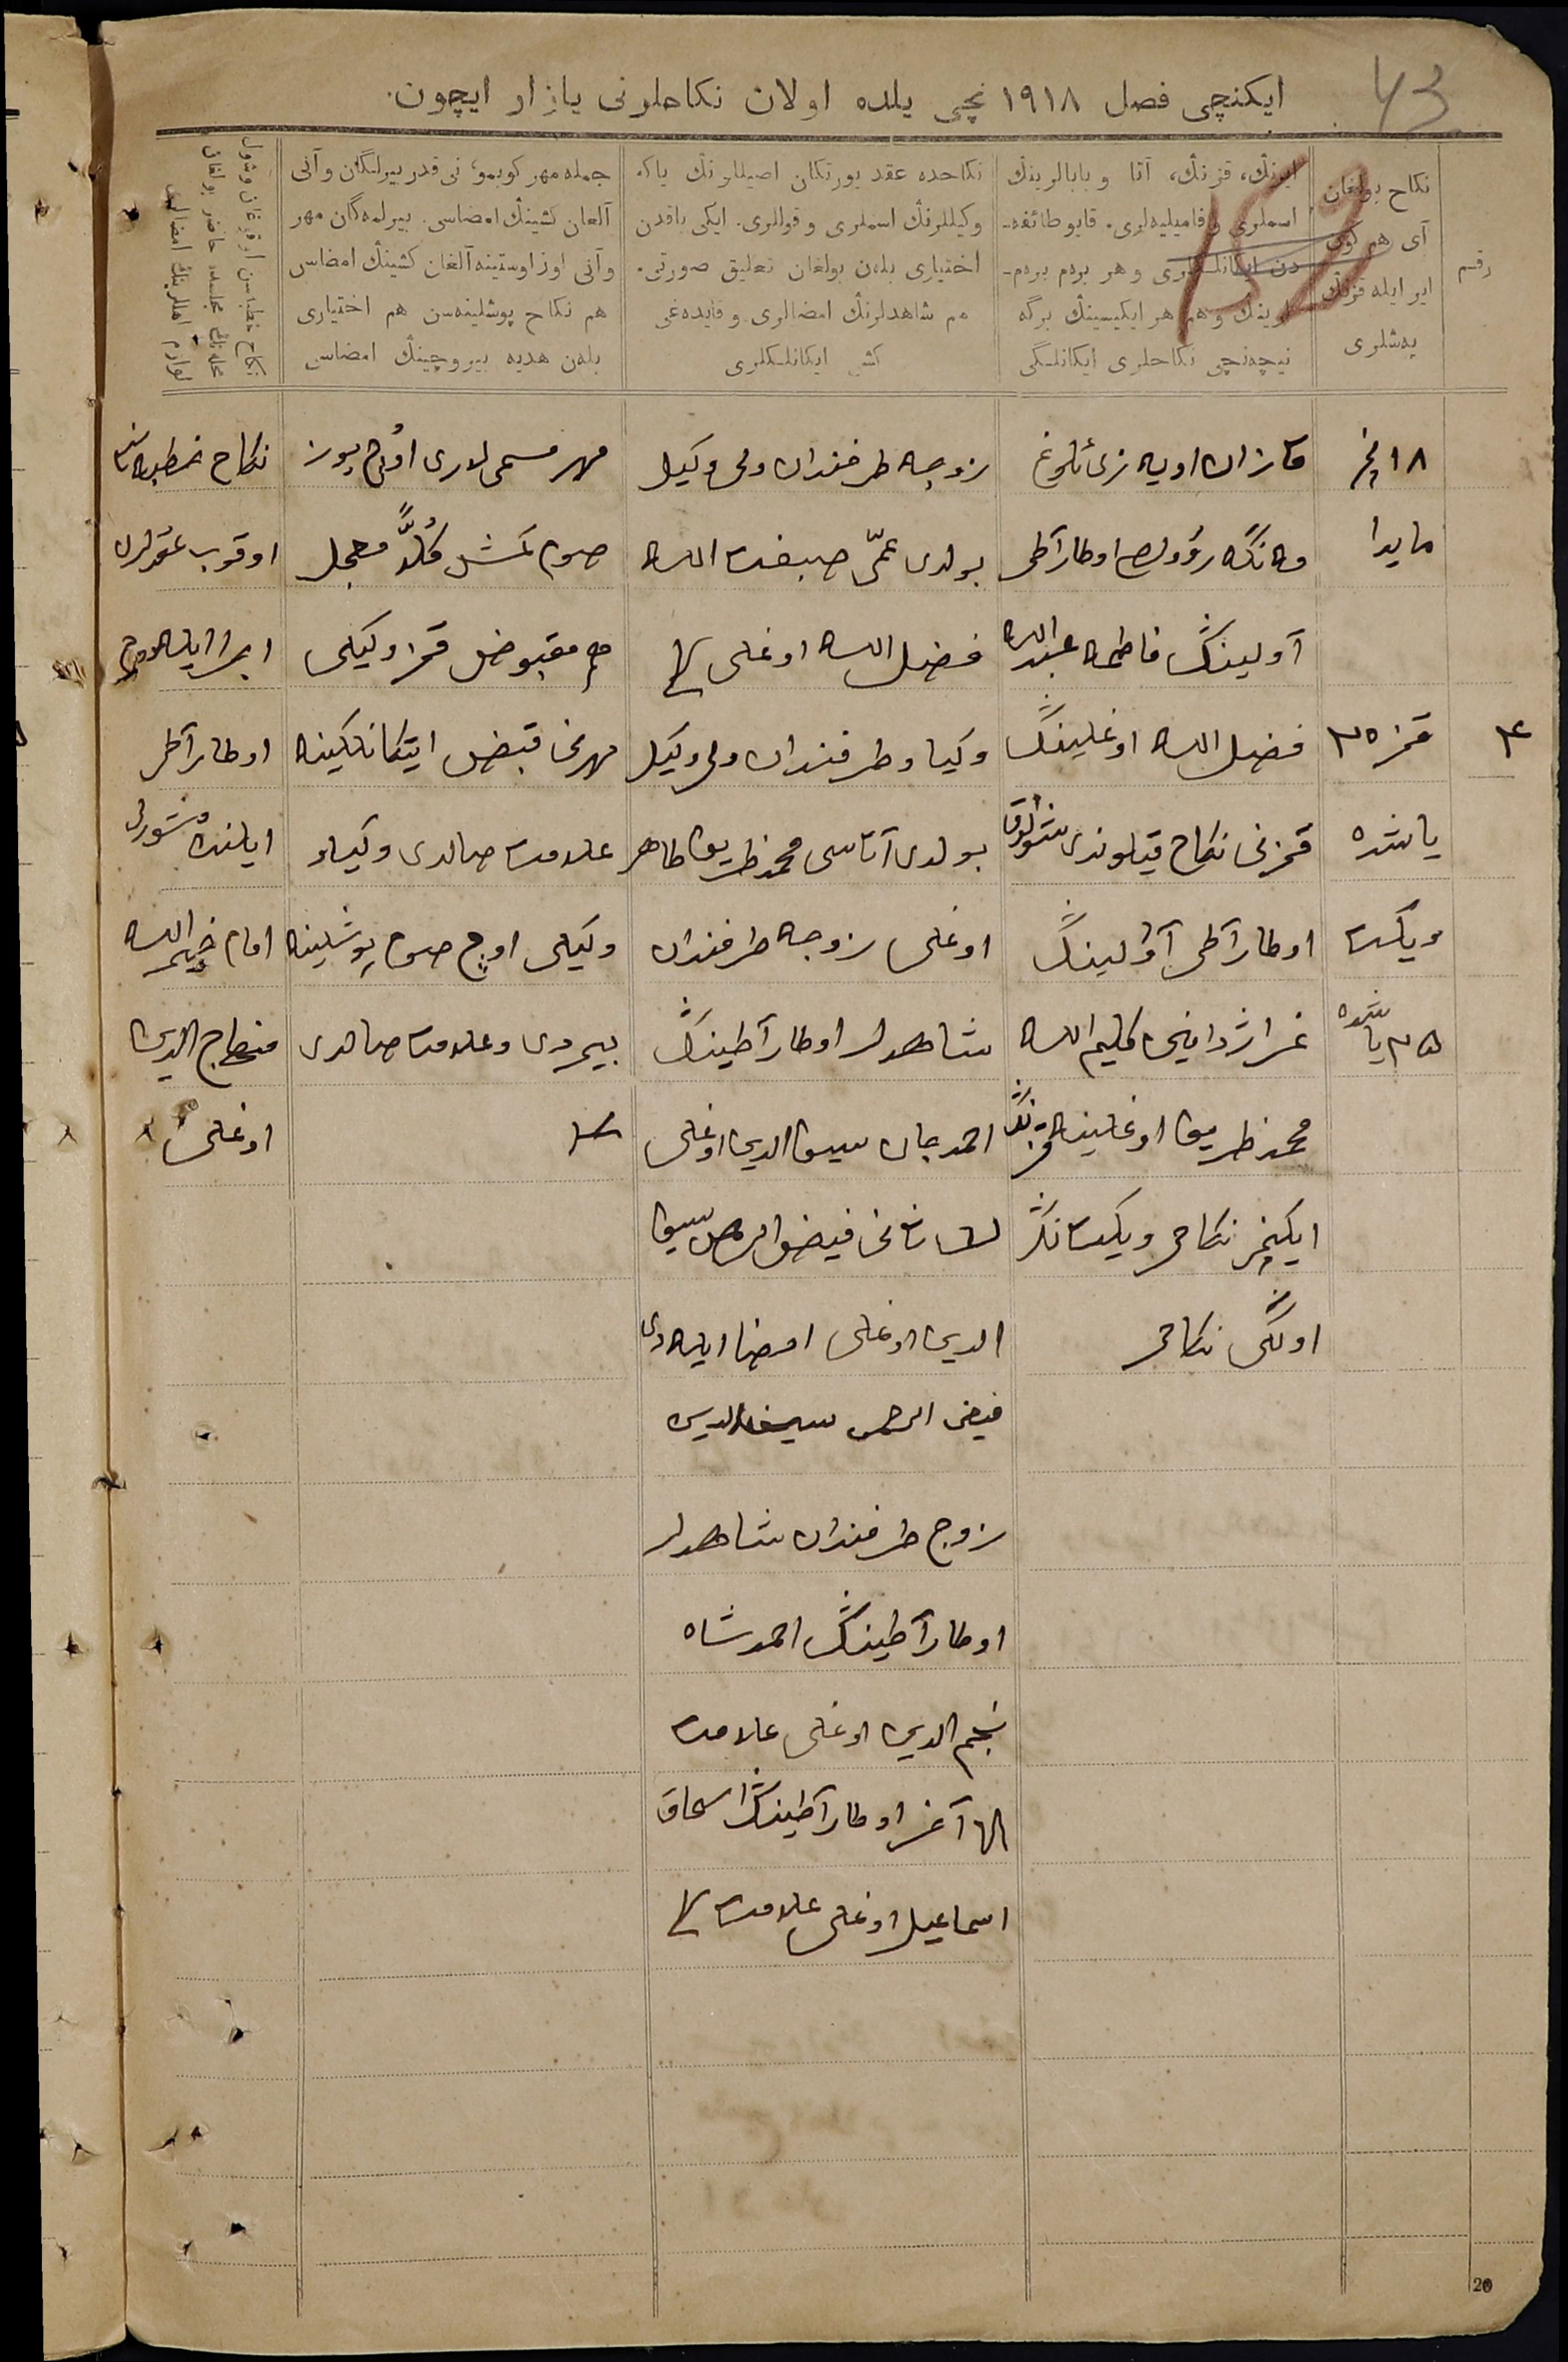 43
ایکنچی فصل ١٩١٨ نچی یلده اولان نکاحلرنی یازار ایچون.
رقم
نکاح بولغان
آی هم کون
ایر ایله قزنڭ
یەشلری
ایرنڭ، قزنڭ، آتا و بابالرینڭ
اسملری و فامیلیەلری. قایو طائفه‌ـ
دن ایکانلکلری و هر بردم بردم‌ـ
اوینڭ و هم هر ایکیسینڭ برگه
نیچەنچی نکاحلری ایکانلگی
نکاحده عقد یورتکان اصیللرنڭ یاکە
وکیللرنڭ اسملری و قوللری. ایکی یاقدن
اختیاری بلەن بولغان تعلیق صورتی.
هم شاهدلرنڭ امضالری و قایدەغی
کشی ایکانلکلری
جمله مهر کوبمو، نی قدر بیرلگان و آنی
آلغان کشینڭ امضاسی. بیرلمەگان مهر
و آنی اوز اوستینه آلغان کشینڭ امضاسی
هم نکاح پوشلینەسن هم اختیاری
بلەن هدیه بیروچینڭ امضاسی
نکاح خطبەسن اوقوغان و شول
محلەنڭ مجلسده حاضر بولغان
لوازم اهللرینڭ امضالری
٤
١٨ نچی
مایدا
قز ٣٥
یاشده
ویکت
٣٥ یاشده
قازان اویەزی
اوطار آطی
آولینڭ فاطمه عبدالله
فضل الله اوغلینڭ
قزنی نکاح قیلوندی شول اوق
اوطار آطی آولینڭ
کلیم الله
محمد ظریف اوغلینه قزنڭ
ایکنچی نکاحی ویکتنڭ
اولگی نکاحی
زوجه طرفندان ولی وکیل
بولدی عمّی صبغت الله
فضل الله اوغلی
وکیاو طرفندان ولی وکیل
بولدی آتاسی محمد ظریف طاهر
اوغلی زوجه طرفندان
شاهدلر اوطار آطینڭ
احمد جان سیف الدین اوغلی
فیض الرحمن سیف
الدین اوغلی امضا ایله‌دی
فیض الرحمن سیف الدین
زوج طرفندان شاهدلر
اوطار آطینڭ احمد شاه
نجم الدین اوغلی علامت
اوطار آطینڭ اسحاق
اسماعیل اوغلی علامت
مهر مسمی لاری اوچ یوز
صوم کمش کلاًّ معجل
هم مقبوض قز وکیلی
مهرنی قبض ایتکانلکینه
علامت صالدی وکیاو
وکیلی اوچ صوم پوشلینه
بیردی و علامت صالدی
نکاح خطبه‌سن
اوقوب عقدلرن
اجرا ایله‌دم
اوطار آطی
امام خیر الله
منهاج الدین
اوغلی
20